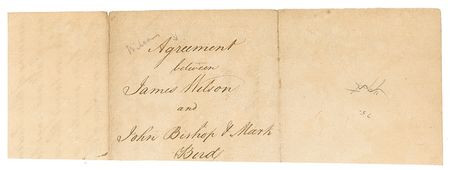 Agreement
between
James Wilson
and
John Bishop & Mark
Bird